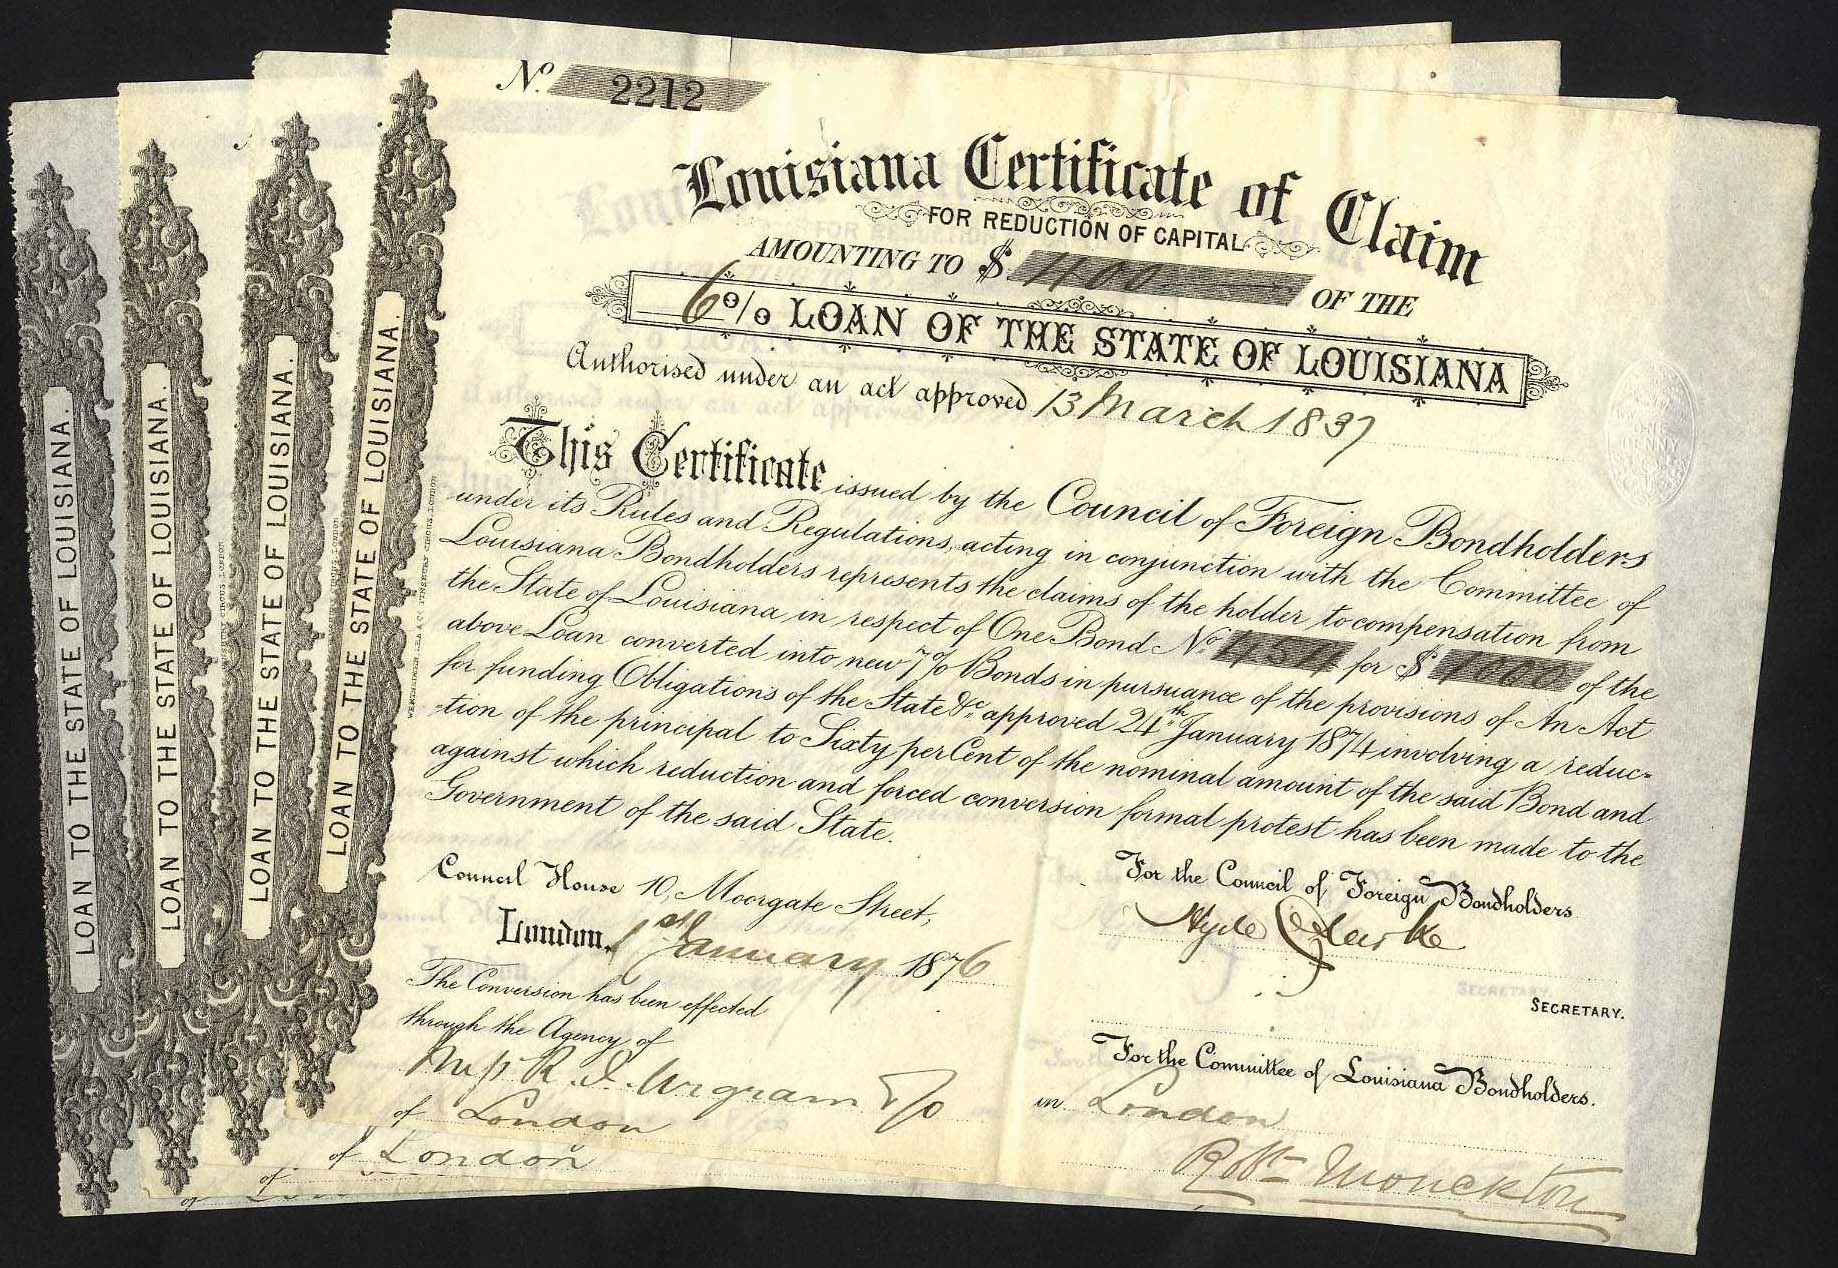 No. 2212
Louisiana Certificate of Claim
FOR REDUCTION OF CAPITAL
AMOUNTING TO $ 400 OF THE
6 % LOAN OF THE STATE OF LOUISIANA
Authorised under an act approved 13 March 1837
This Certificate issued by the Council of Foreign Bondholders
under its Rules and Regulations, acting in conjunction with the Committee of
Louisiana Bondholders represents the claims of the holder, to compensation from
the State of Louisiana in respect of One Bond No. 454 for $ 1000 of the
above Loan converted into new 7% Bonds in pursuance of the provisions of An Act
for funding Obligations of the State &c. approved 24th January 1874 involving a reduc-
-tion of the principal to Sixty per Cent of the nominal amount of the said Bond and
against which reduction and forced conversion formal protest has been made to the
Government of the said State.
Council House 10, Moorgate Street,
London, 1st January 1876
The Conversion has been effected
through the Agency of
R. I.
of London
of London
of
of
For the Council of Foreign Bondholders
Hyde Clarke
SECRETARY.
For the Committee of Louisiana Bondholders.
in London
Robt Monckton
LOAN TO THE STATE OF LOUISIANA.
LOAN TO THE STATE OF LOUISIANA.
LOAN TO THE STATE OF LOUISIANA.
LOAN TO THE STATE OF LOUISIANA.
ONE
PENNY